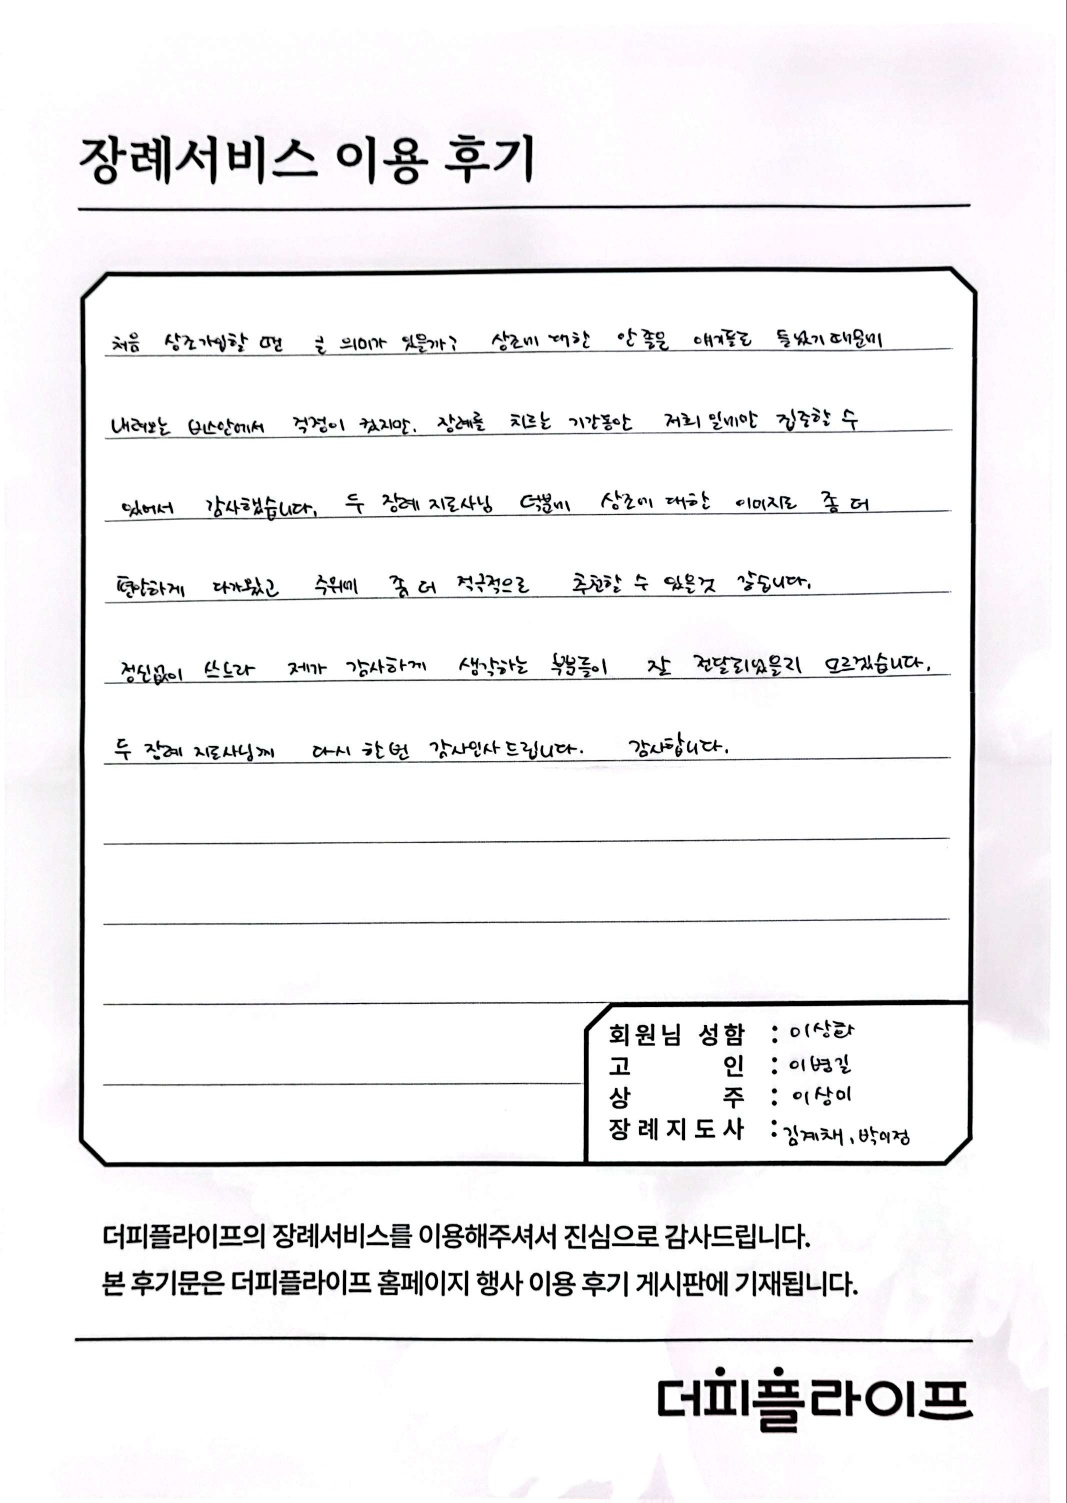 장례서비스 이용 후기
처음 상조가입할 땐 큰 의미가 있을까? 상조에 대한 안 좋은 얘기들도 들었기 때문에
내려오는 버스안에서 걱정이 컸지만, 장례를 치르는 기간동안 저희 일에만 집중할 수
있어서 감사했습니다. 두 장례 지도사님 덕분에 상조에 대한 이미지도 좀 더
편안하게 다가왔고 주위에 좀 더 적극적으로 추천할 수 있을것 같습니다.
정신없이 쓰느라 제가 감사하게 생각하는 부분들이 잘 전달되었을지 모르겠습니다.
두 장례 지도사님께 다시 한번 감사인사드립니다. 감사합니다.
회원님 성함 : 이상화
고 인 : 이병길
상 주 : 이상미
장례지도사 : 김계채, 박이정
더피플라이프의 장례서비스를 이용해주셔서 진심으로 감사드립니다.
본 후기문은 더피플라이프 홈페이지 행사 이용 후기 게시판에 기재됩니다.
더피플라이프